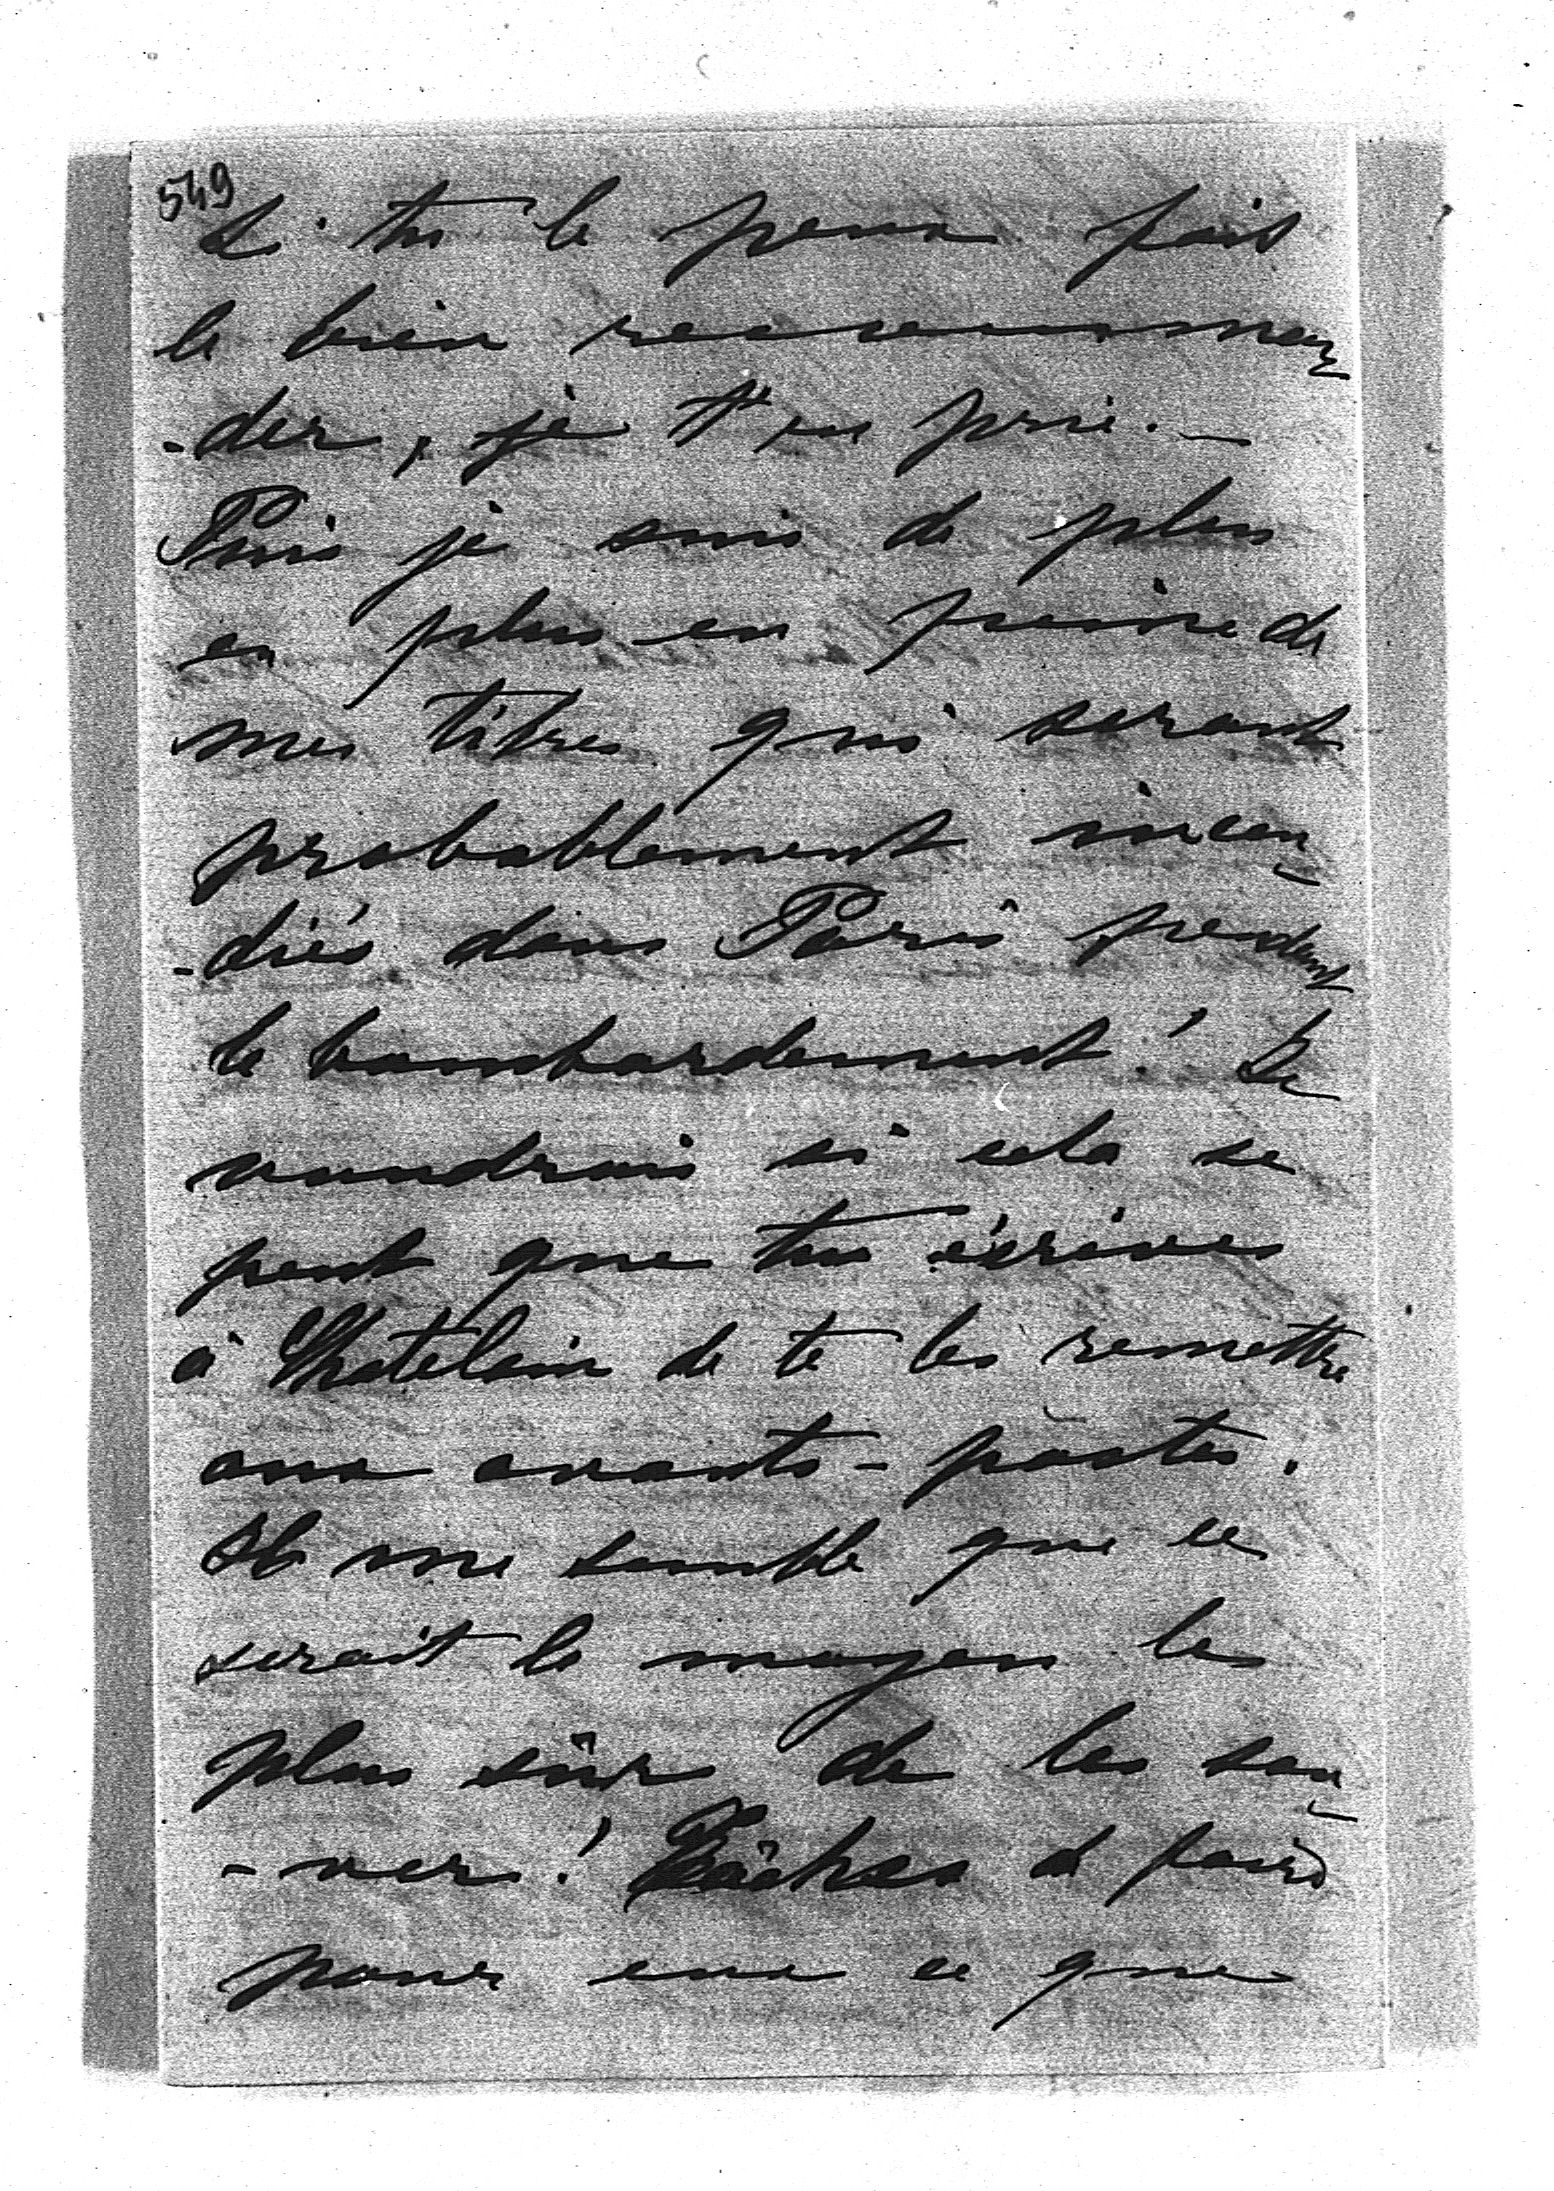 549
Si tu le peux fais
le bien recommen
-der, je t'en prie. —
Puis je suis de plus
en plus en peine de
mes titres qui seront
probablement incen
-diés dans Paris pendant
le bombardement ! Je
voudrais si cela se
peut que tu écrives
à Chatelain de te les remettre
aux avants-postes.
Il me semble que ce
serait le moyen le
plus sûr de les sau
-ver ! Tâches de faire
pour eux ce que